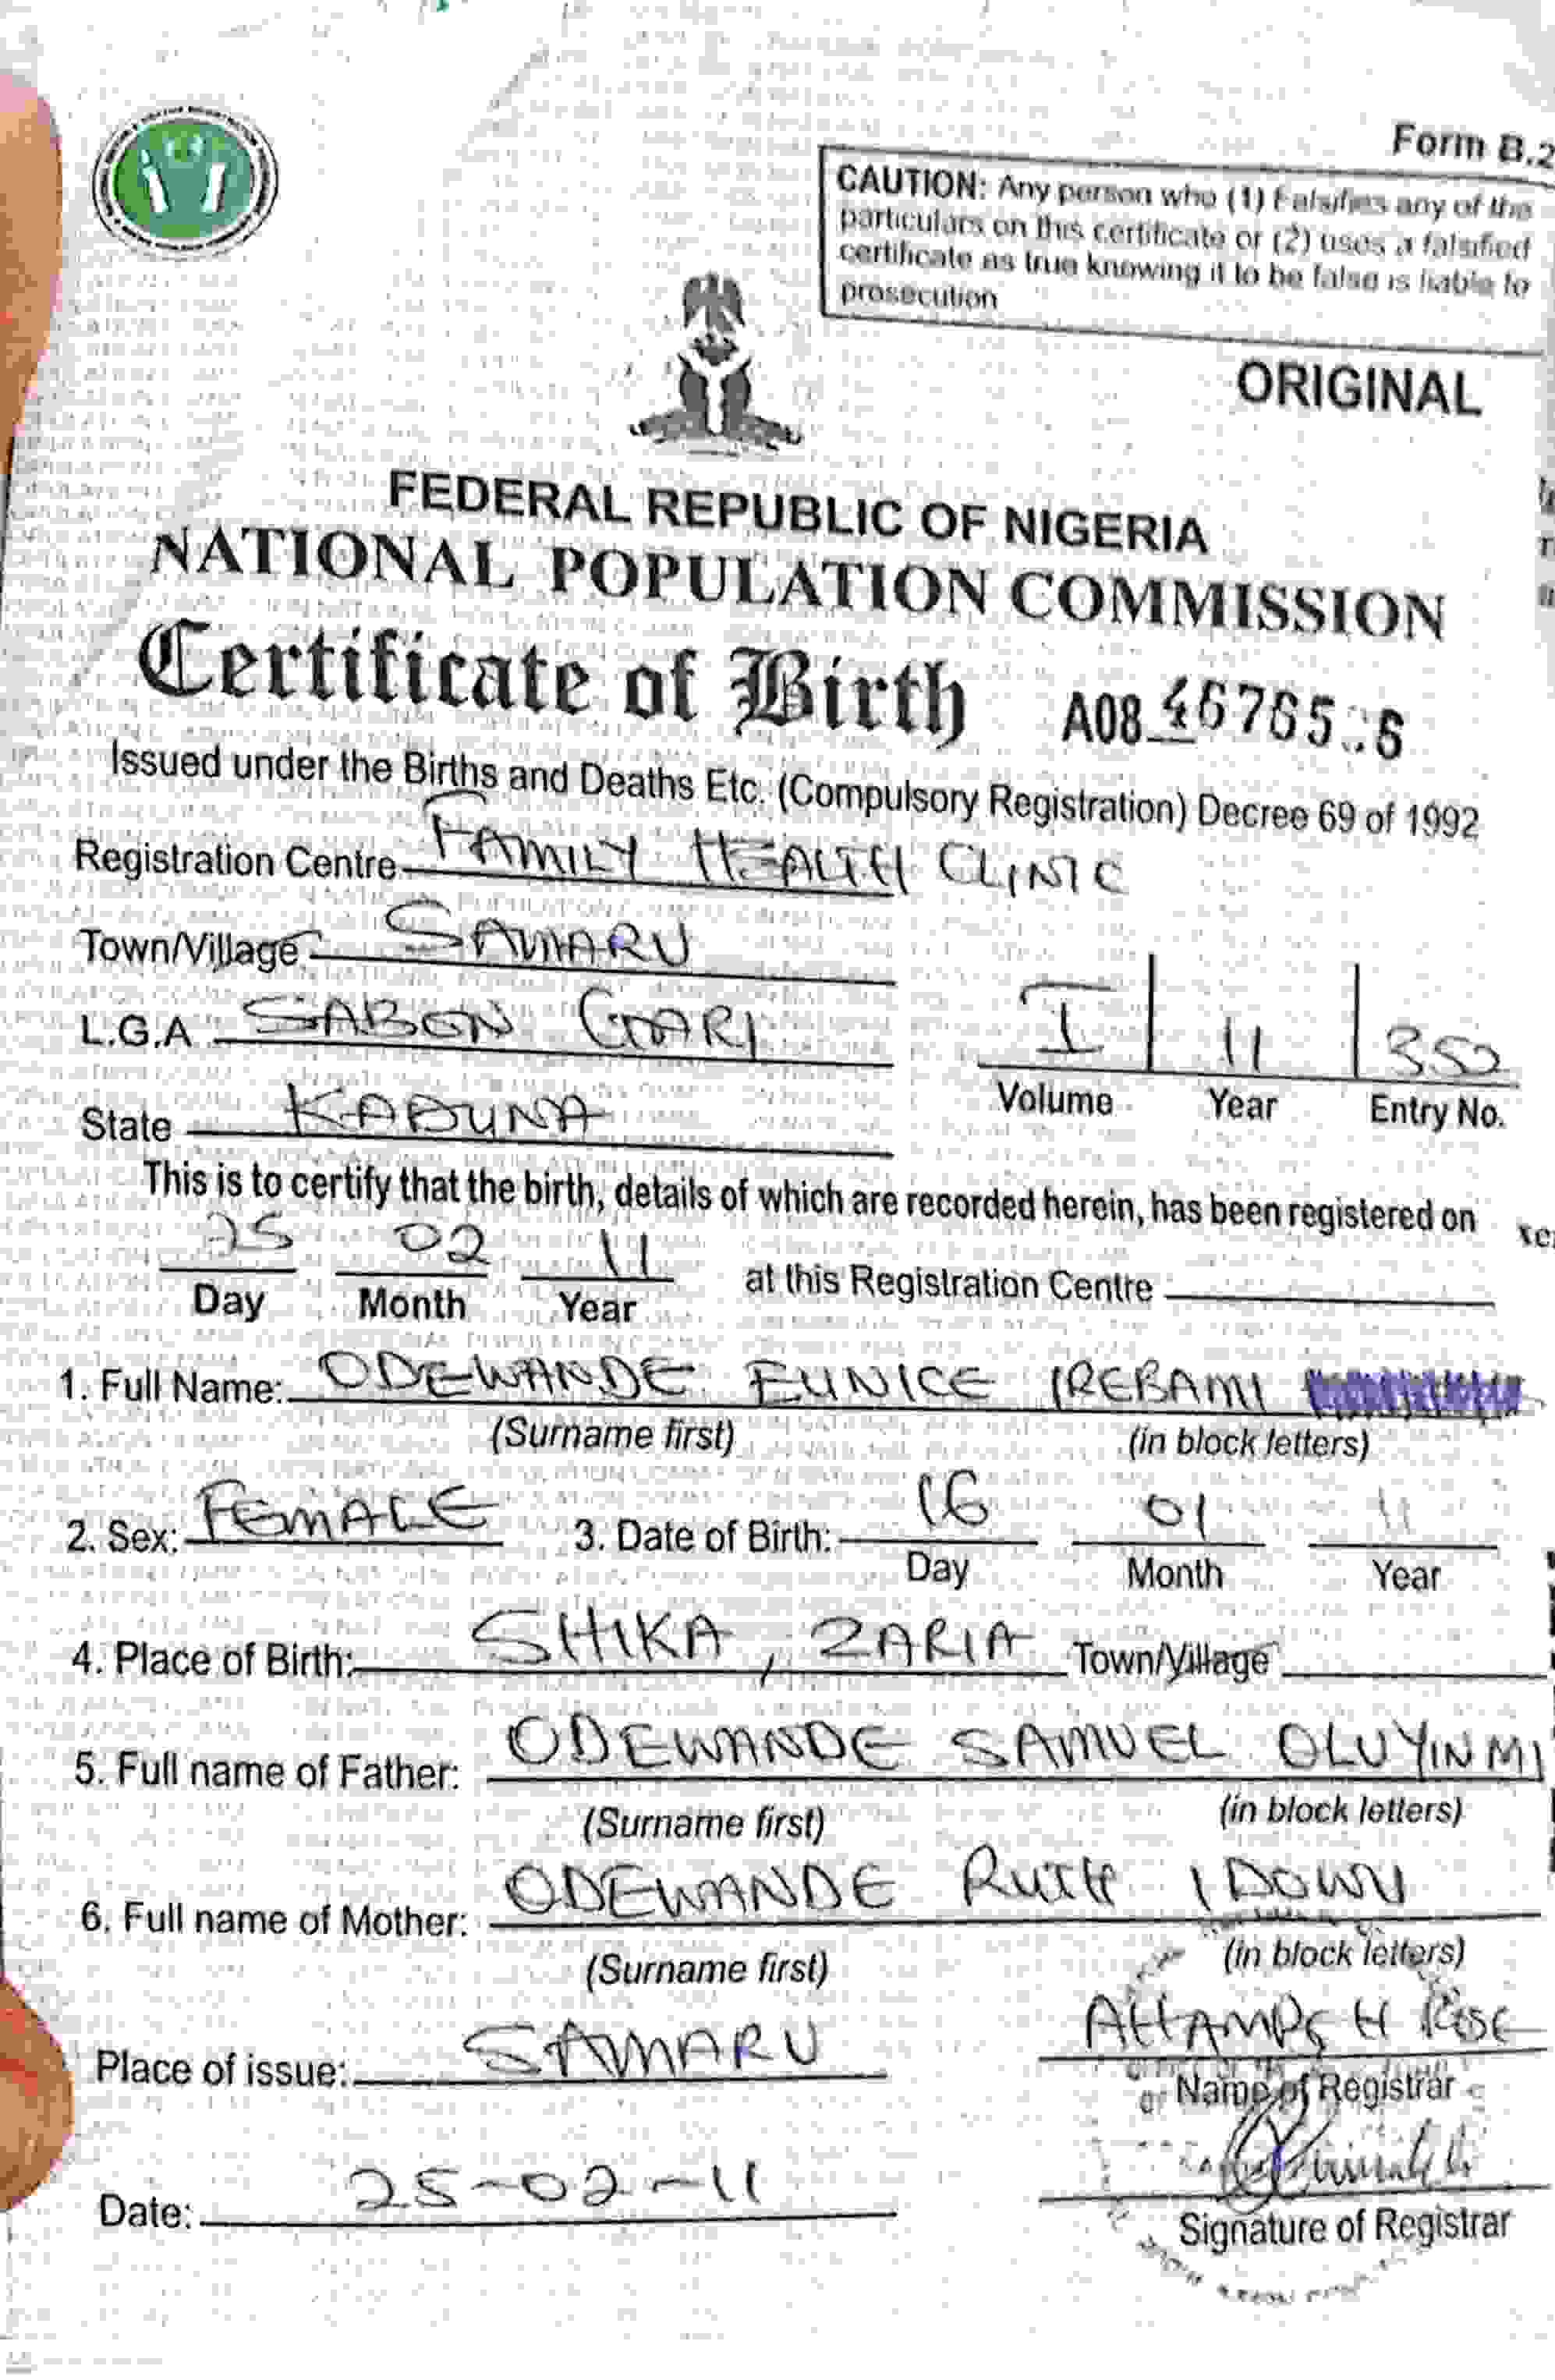 Form B.2
CAUTION: Any person who (1) Falsifies any of the
particulars on this certificate or (2) uses a falsified
certificate as true knowing it to be false is liable to
prosecution
ORIGINAL
FEDERAL REPUBLIC OF NIGERIA
NATIONAL POPULATION COMMISSION
Certificate of Birth A08
Issued under the Births and Deaths Etc. (Compulsory Registration) Decree 69 of 1992
Registration Centre FAMILY HEALTH CLINIC
Town/Village SAMARU
L.G.A SABON GARI
I 11 350
Volume Year Entry No.
State KADUNA
This is to certify that the birth, details of which are recorded herein, has been registered on
25 02 11
Day Month Year at this Registration Centre
1. Full Name: ODEWANDE EUNICE IREBAMI
(Surname first) (in block letters)
2. Sex: FEMALE 3. Date of Birth: 16 01 11
Day Month Year
4. Place of Birth: SHIKA, ZARIA Town/Village
5. Full name of Father: ODEWANDE SAMUEL OLUYINMI
(Surname first) (in block letters)
6. Full name of Mother: ODEWANDE RUTH IDOWU
(Surname first) (in block letters)
Place of issue: SAMARU
Name of Registrar
Date: 25-02-11
Signature of Registrar